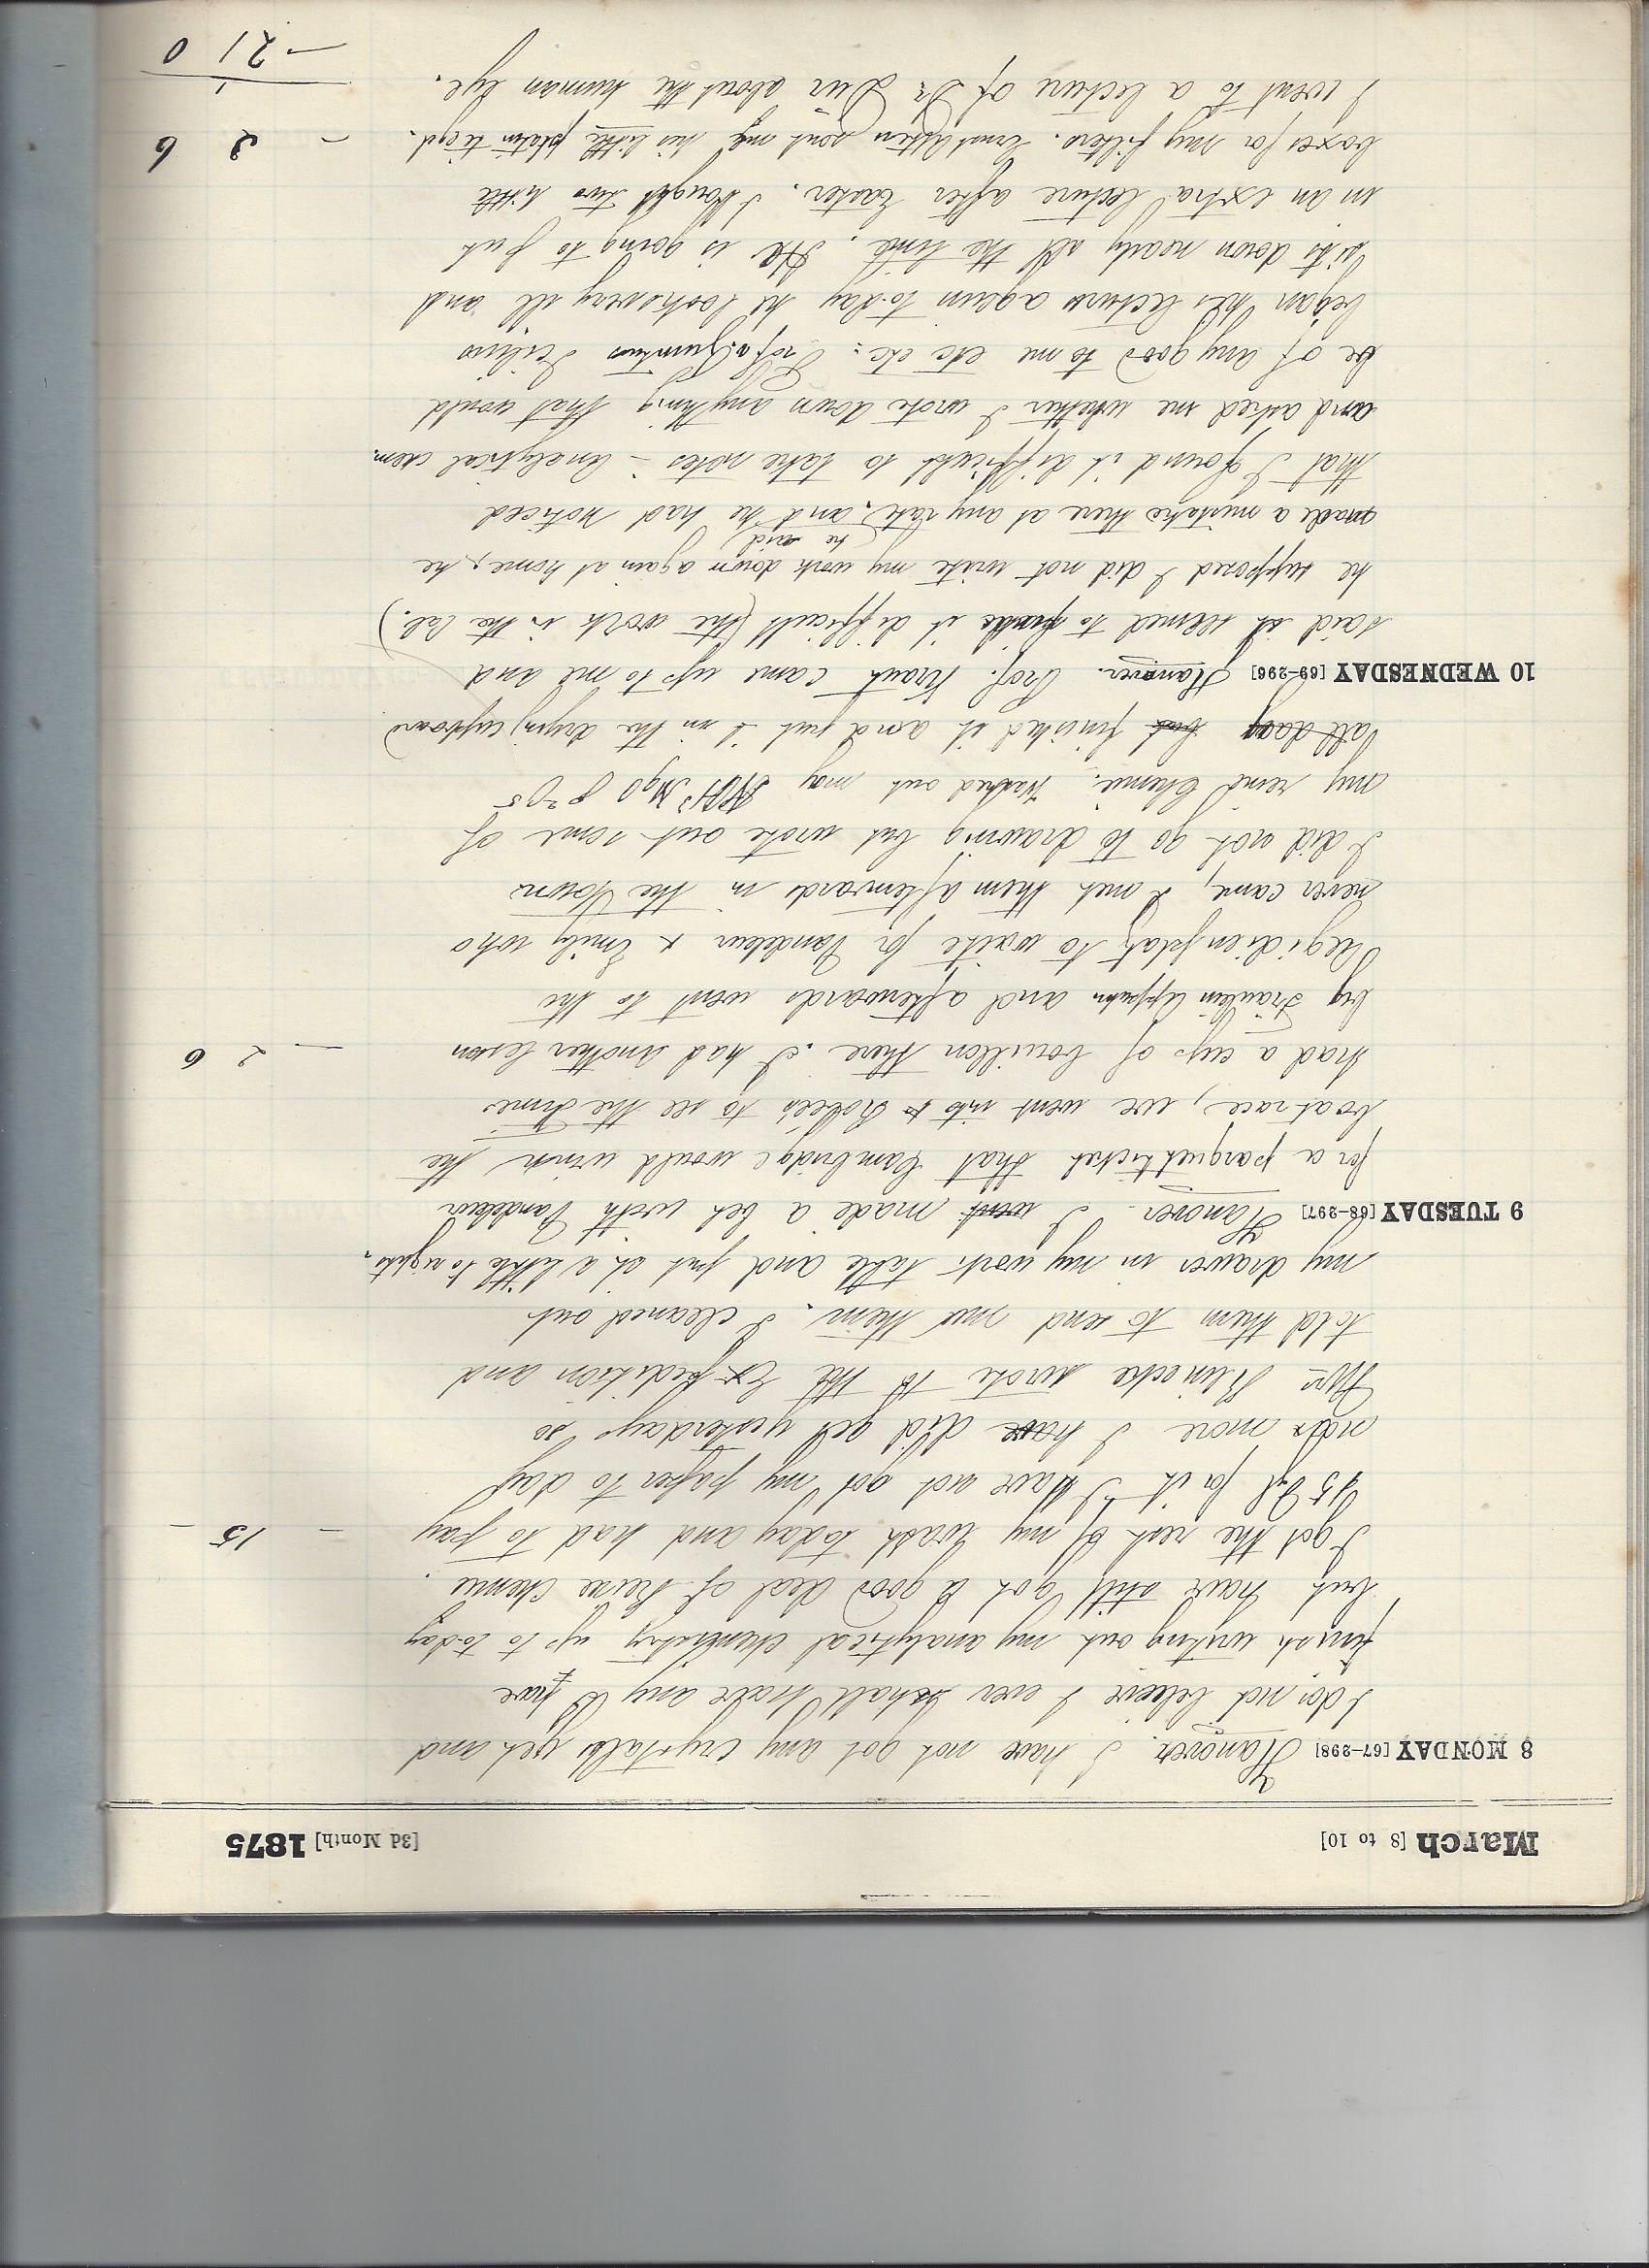 March [8 to 10] [3d Month] 1875
8 MONDAY [67-298] Hanover. I have not got any crystals yet and
I do not believe I ever shall have any I have
finish writing out my analytical chemistry up to today
but have still got a good deal of Reine Chemie.
I got the rest of my wash today and had to pay — 15 —
for it I have not got my paper to day
more I have did get yesterday so
wrote to the Expedition and
told them to send me them. I cleaned out
my drawer in my work table and put it a little to rights.
9 TUESDAY [68-297] Hanover. I went made a bet with Vandeleur
for a parquet ticket that Cambridge would win the
boat race, we went into to see the Times
had a cup of bouillon there. I had another lesson — 2 6
by Fräulein and afterwards went to the
Aegidienplatz to waite for Vandeleur & Emily who
never came, I met them afterwards in the town
I did not go to drawing but wrote out some of
my reine Chemie. Washed out my
all day but finished it and put it in the drying cupboard
10 WEDNESDAY [69-296] Hanover. Prof. Kraut came up to me and
said it seemed to be it difficult (the work in the Lab.)
he supposed I did not write my work down again at home, he
he said
made a mistake there at any rate, and he had noticed
that I found it difficult to take notes – Analytical chem.
and asked me whether I wrote down anything that would
be of any good to me etc etc. Prof.
began his lectures again today he looks very ill and
sits down nearly all the time. He is going to put
in an extra lecture after Easter. I bought two little
boxes for my filters. sent me his little platin tiegel. — 3 6
I went to a lecture of Dr about the human Eye.
— 21 0